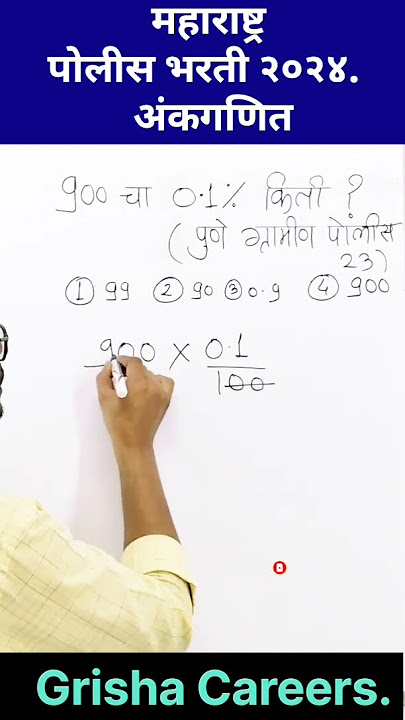 महाराष्ट्र
पोलीस भरती २०२४.
अंकगणित
900 चा 0.1% किती ?
(पुणे ग्रामीण पोलीस
23)
① 99 ② 90 ③ 0.9 ④ 900
900 × 0.1
100
Grisha Careers.